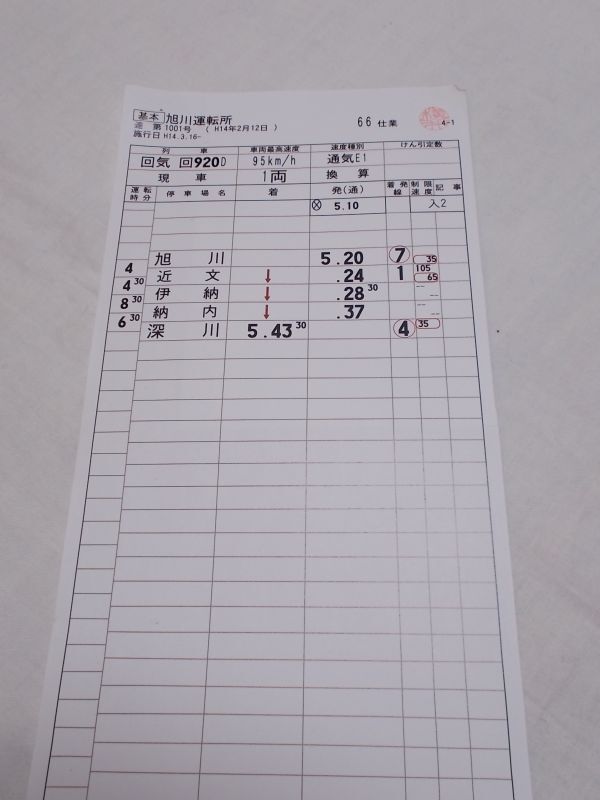 基本 旭川運転所 66仕業 4-1
達 第1001号 ( H14年2月12日 )
施行日 H14.3.16-
列車 車両最高速度 速度種別 けん引定数
回気 回920D 95km/h 通気E1
現車 1両 換算
運転時分 停車場名 着 発(通) 着発線 制限速度 記事
5.10 入2
旭川 5.20 7 35
4
近文 ↓ .24 1 105 65
4 30
伊納 ↓ .28 30 --
8 30
納内 ↓ .37 --
6 30
深川 5.43 30 4 35